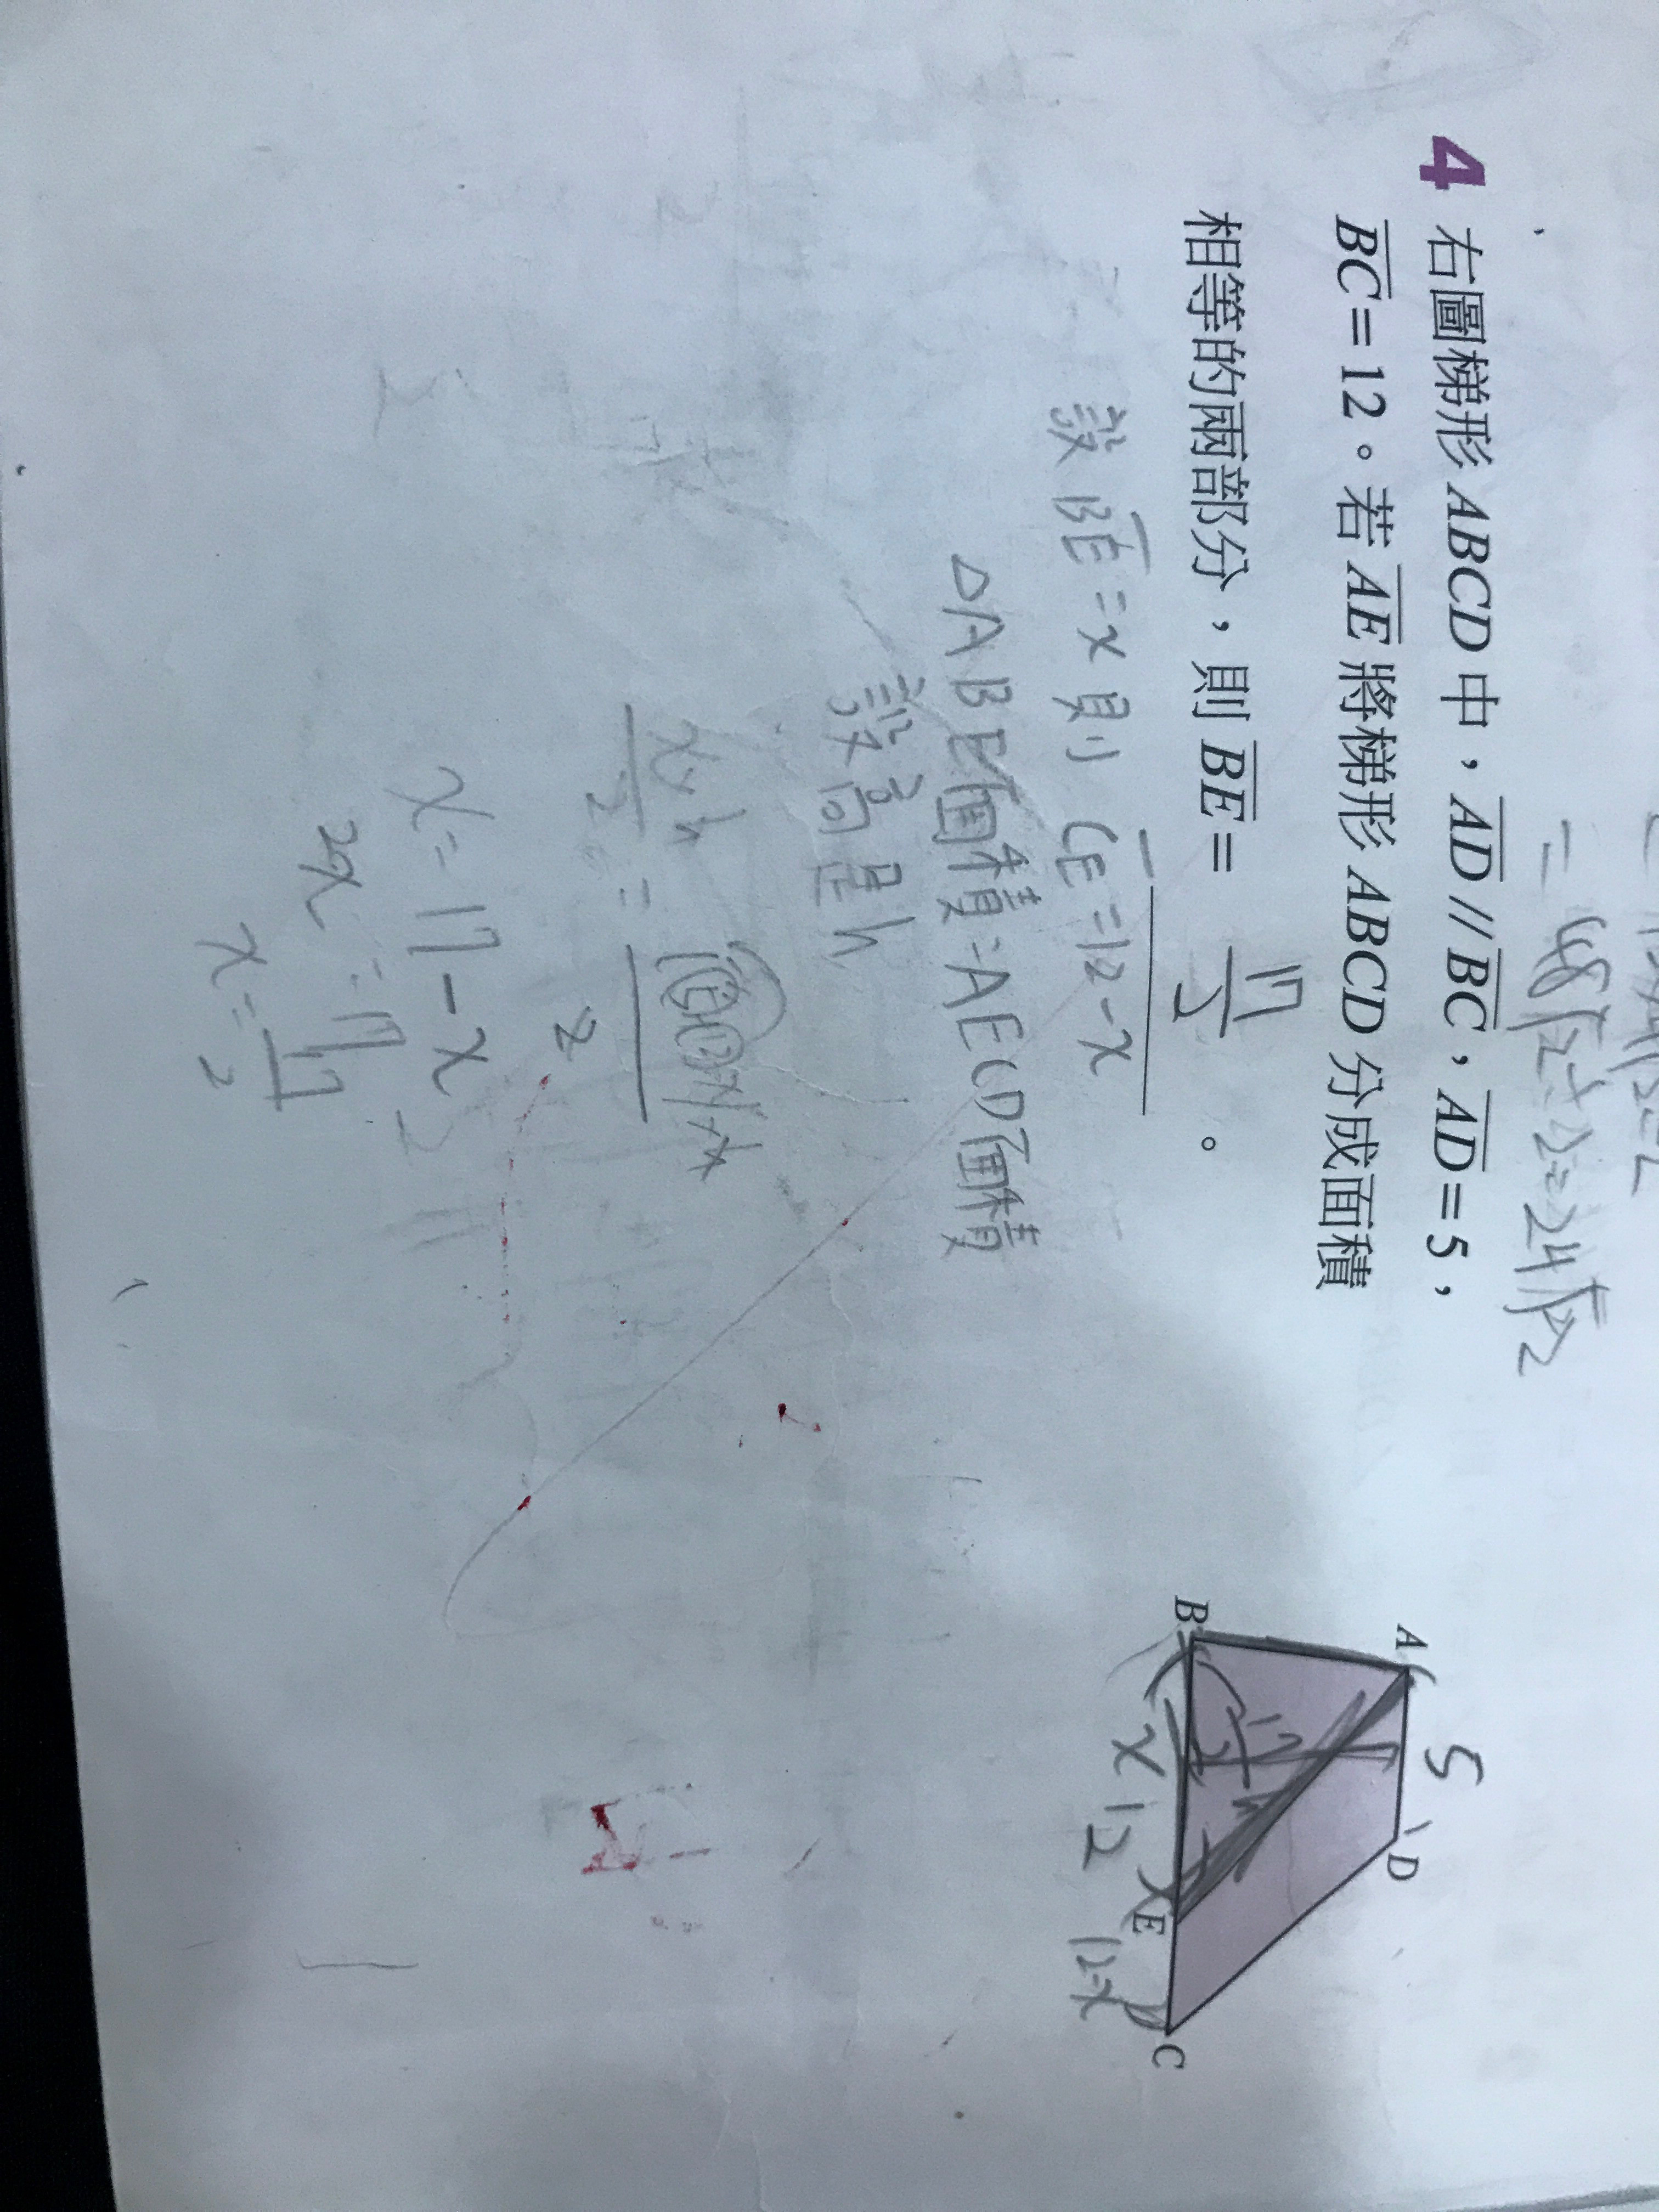 = 48√2÷2=24√2
4 右圖梯形 ABCD 中，AD // BC，AD = 5，
BC = 12。若 AE 將梯形 ABCD 分成面積
相等的兩部分，則 BE = 17/2 。
設 BE = x 則 CE = 12 - x
△ABE面積=AECD面積
設高是h
x = 17 - x
2x = 17
x = 17/2
A
5
D
B
x
12
E
12-x
C